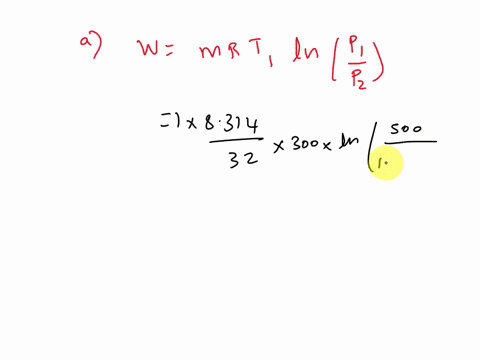 a) W = m R T₁ ln (P₁/P₂)
= 1 × 8.314/32 × 300 × ln (500/1.